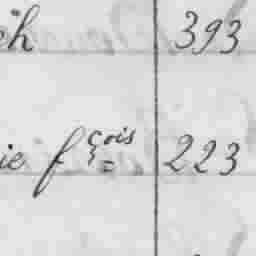 eh 393
ie fçois 223